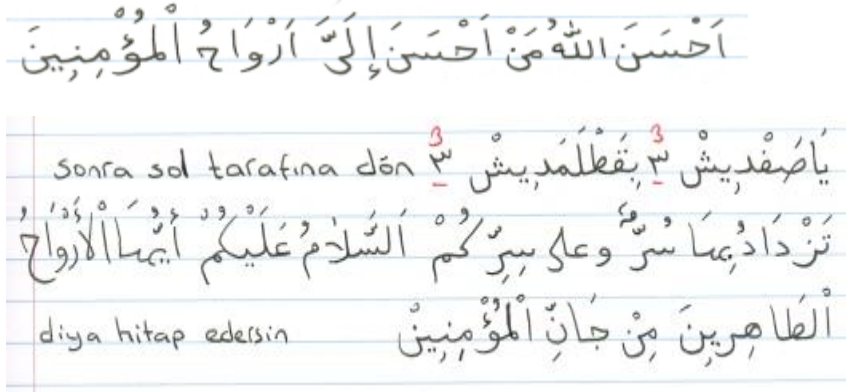 اَحْسَنَ اللّٰهُ مَنْ اَحْسَنَ إِلَىَّ اَرْوَاحُ الْمُؤْمِنِينَ
يَاصَفْدِيشْ ٣ 3 بِقَطْلَمَدِيشْ ٣ 3 sonra sol tarafına dön
تَزْدَادُ بِهَا سُرّ وعلى سِرِّكُمْ اَلسَّلَامُ عَلَيْكُمْ أَيُّهَا الْأَرْوَاحُ
اَلْطَاهِرِينَ مِنْ جَانِّ الْمُؤْمِنِينْ diya hitap edersin